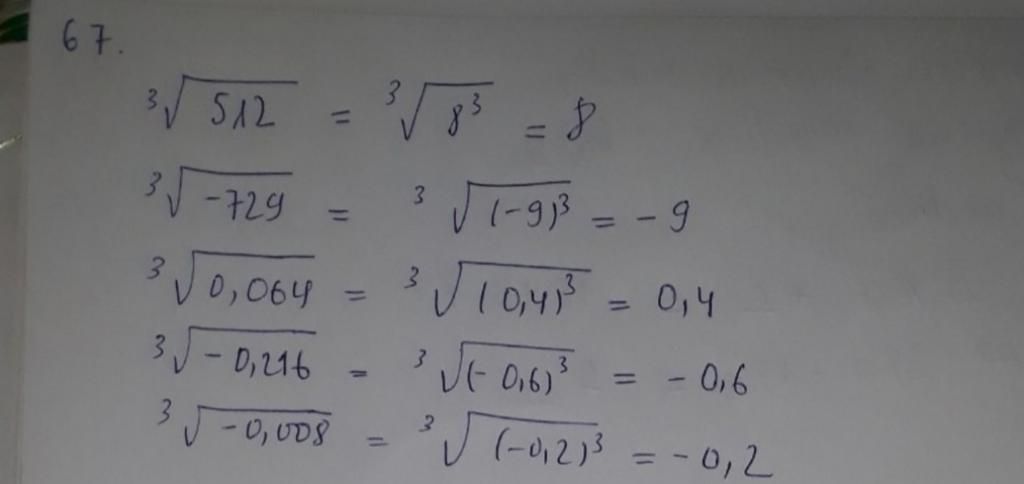 67.
∛512 = ∛8³ = 8
∛-729 = ∛(-9)³ = -9
∛0,064 = ∛(0,4)³ = 0,4
∛-0,216 = ∛(-0,6)³ = -0,6
∛-0,008 = ∛(-0,2)³ = -0,2